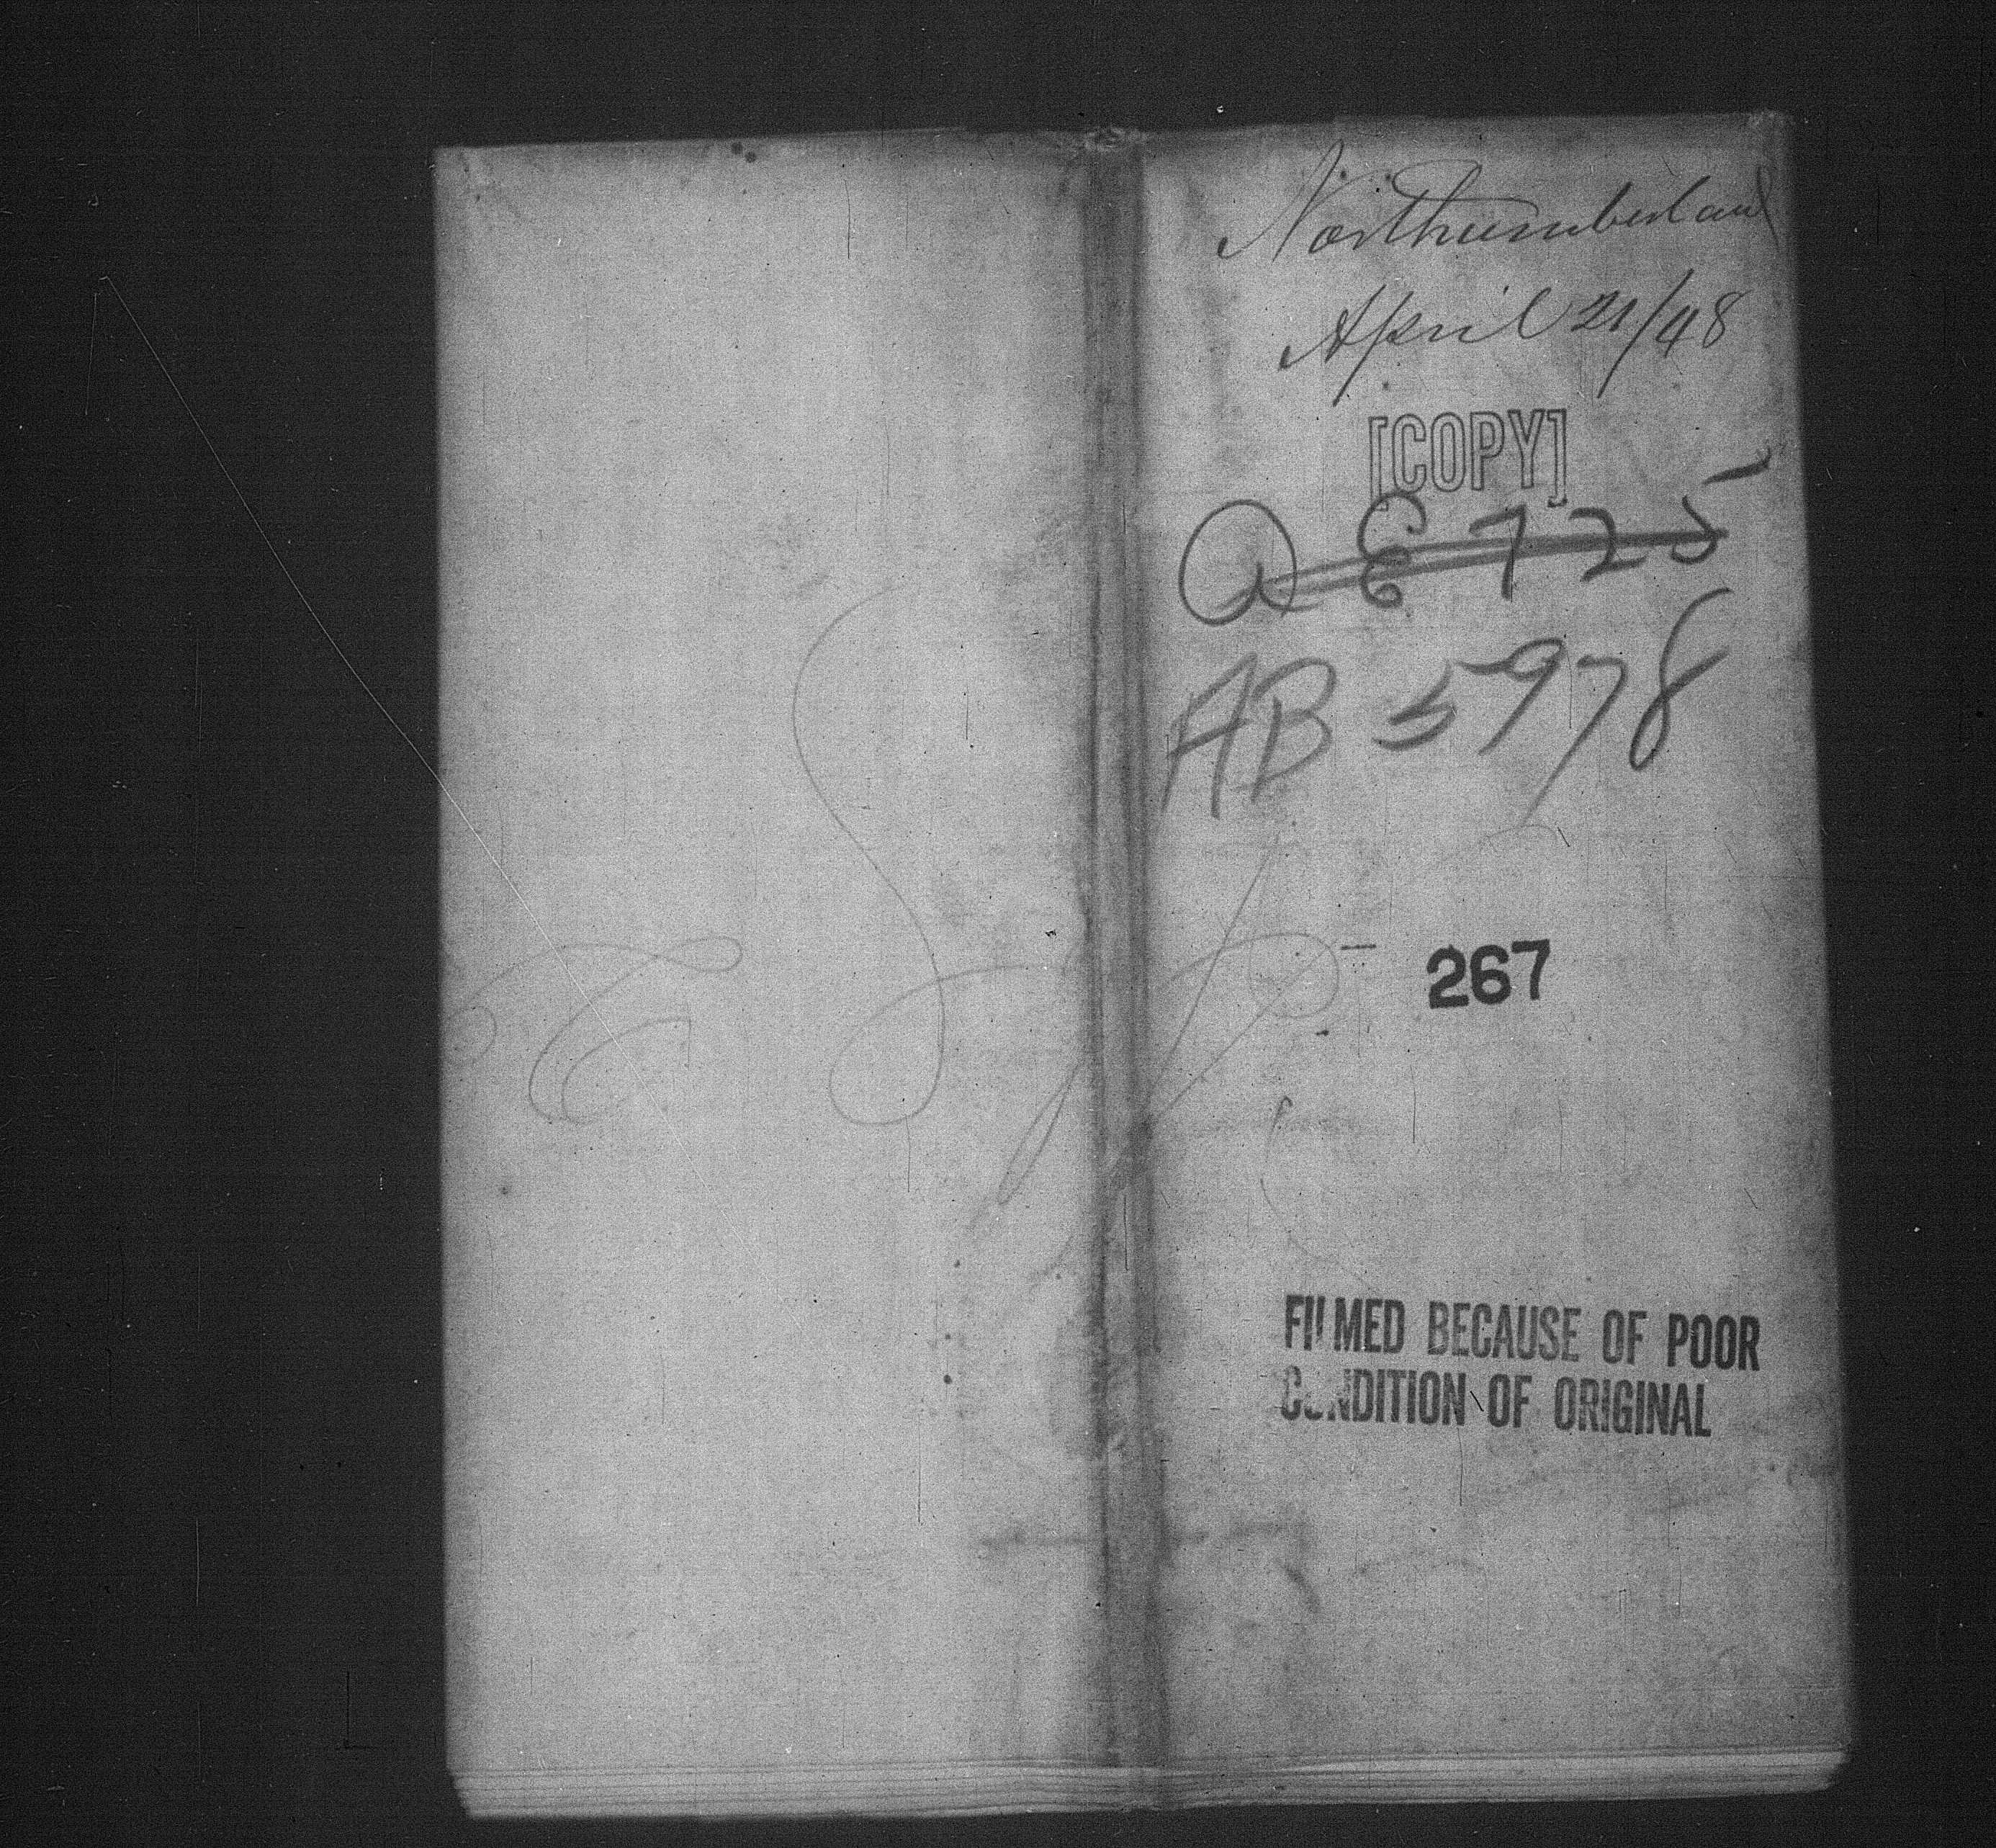 Northumberland
April 21/48
[COPY]
Q E 725
AB 5978
267
FILMED BECAUSE OF POOR
CONDITION OF ORIGINAL